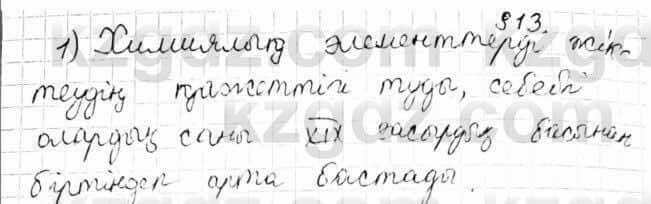 §13
1) Химиялық элементтерді жік-
теудің қажеттігі туды, себебі
олардың саны XIX ғасырдың басынан
біртіндеп арта бастады.